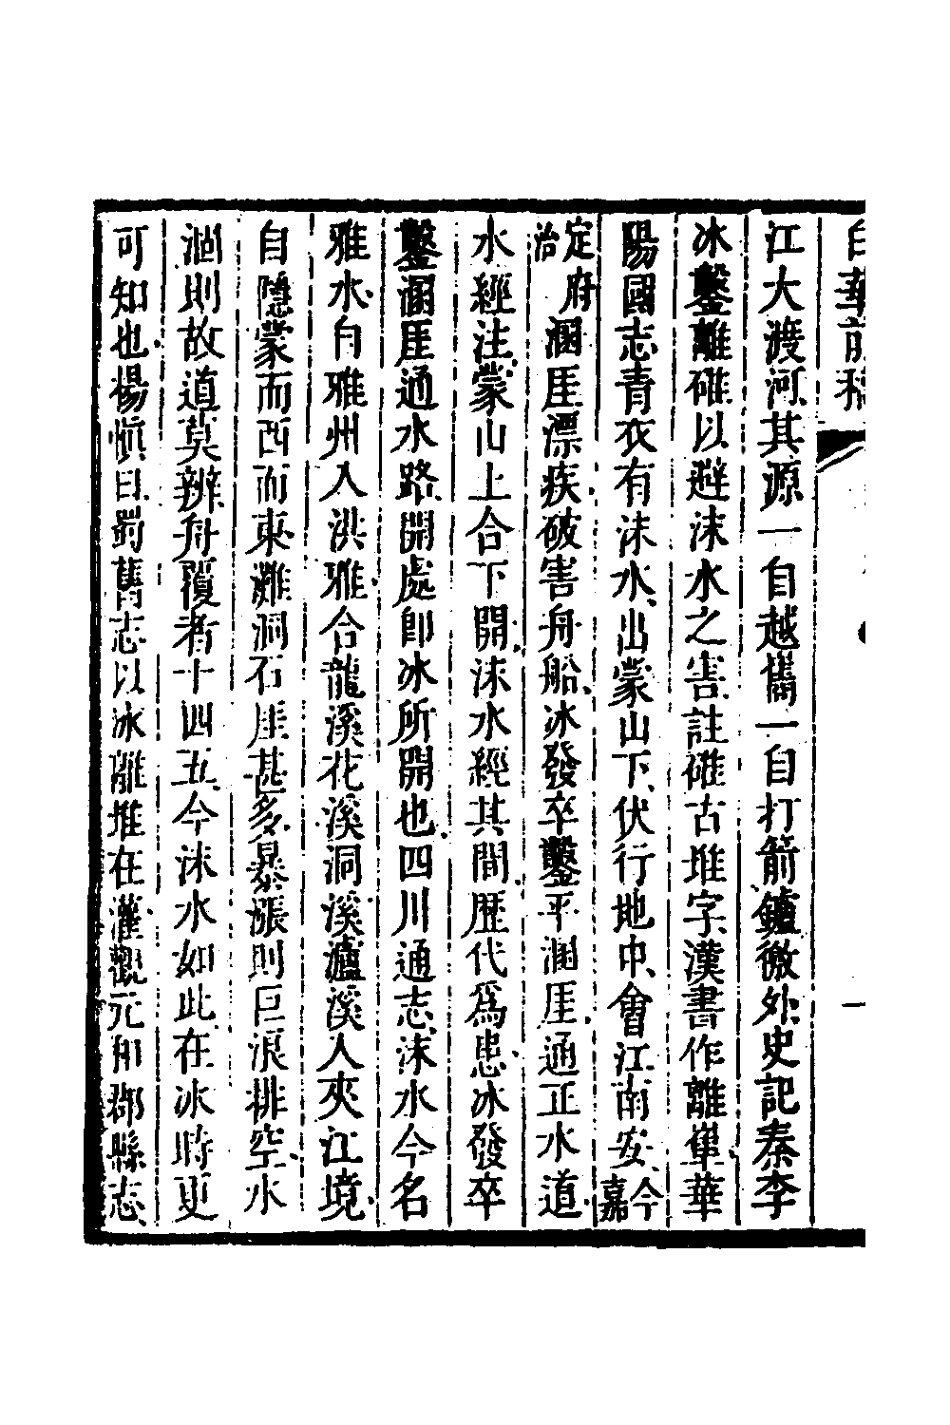 白華前稿
一
江大渡河其源一自越雟一自打箭鑪徼外史記秦李
冰鑿離碓以避沫水之害註碓古堆字漢書作離𡹐華
陽國志青衣有沫水出蒙山下伏行地中會江南安今嘉
定府治溷厓漂疾破害舟船冰發卒鑿平溷厓通正水道
水經注蒙山上合下開沫水經其間歷代爲患冰發卒
鑿溷厓通水路開處即冰所開也四川通志沫水今名
雅水自雅州入洪雅合龍溪花溪洞溪瀘溪入夾江境
自隱蒙而西而東灘洞石厓甚多暴漲則巨浪排空水
涸則故道莫辨舟覆者十四五今沫水如此在冰時更
可知也楊慎曰蜀舊志以冰離堆在灌觀元和郡縣志